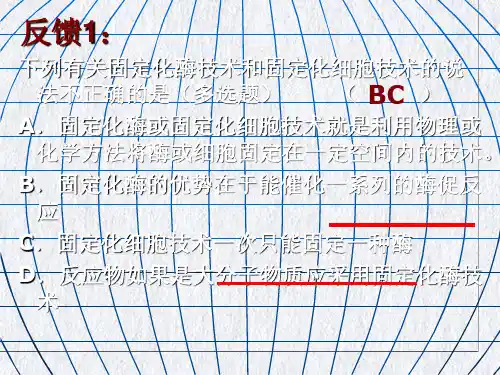 反馈1：
下列有关固定化酶技术和固定化细胞技术的说
法不正确的是（多选题） （ BC ）
A．固定化酶或固定化细胞技术就是利用物理或
化学方法将酶或细胞固定在一定空间内的技术。
B．固定化酶的优势在于能催化一系列的酶促反
应
C．固定化细胞技术一次只能固定一种酶
D．反应物如果是大分子物质应采用固定化酶技
术